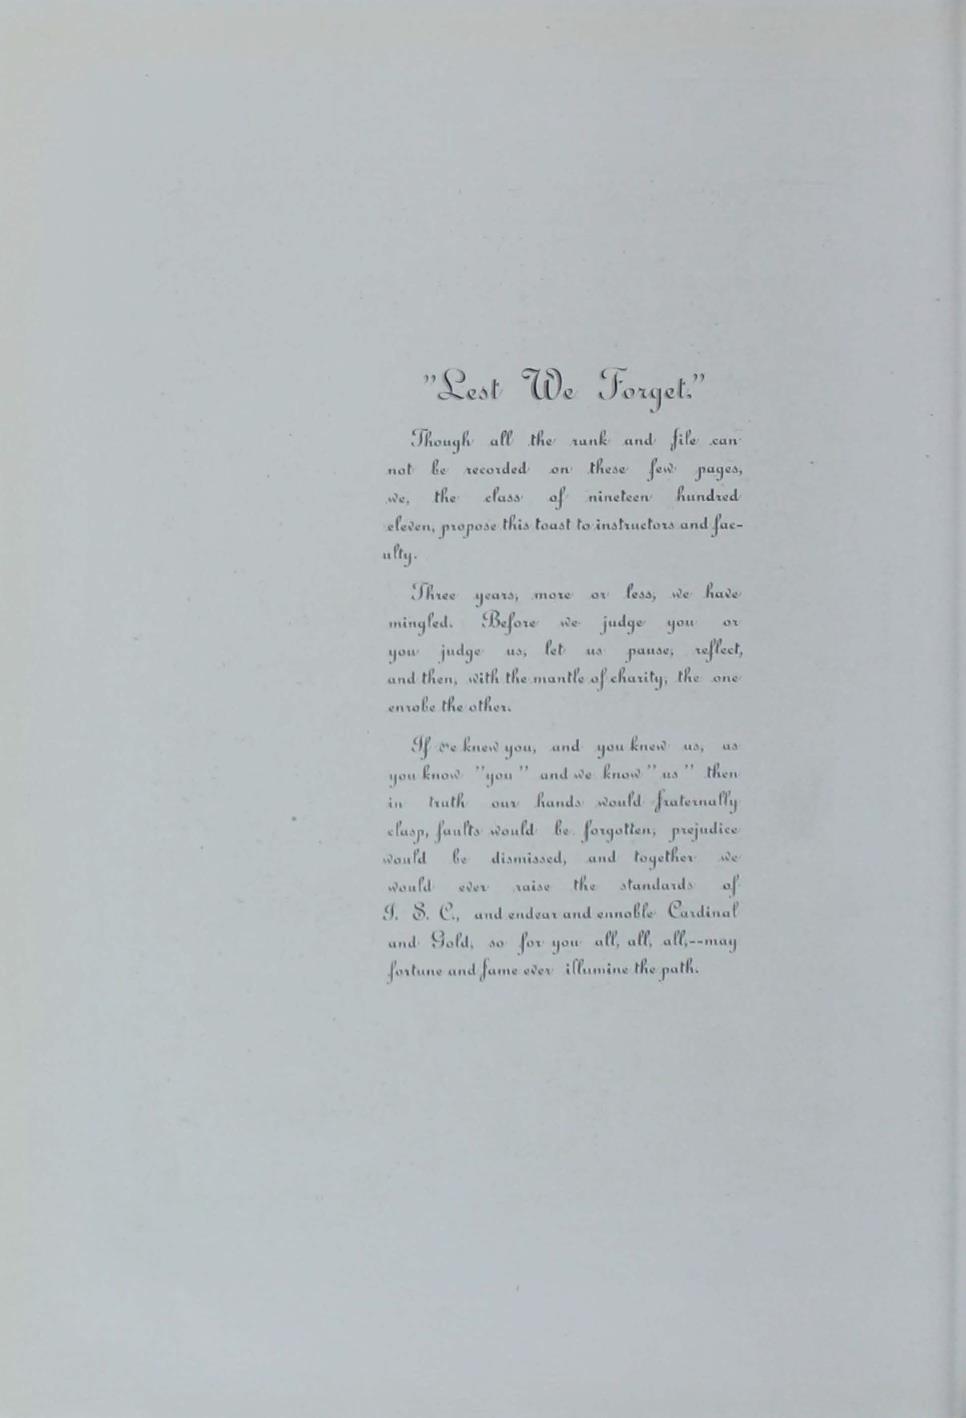 "Lest We Forget."
Though all the rank and file can
not be recorded on these few pages,
we, the class of nineteen hundred
eleven, propose this toast to instructors and fac-
ulty.
Three years, more or less, we have
mingled. Before we judge you or
you judge us, let us pause, reflect,
and then, with the mantle of charity, the one
enrobe the other.
If we knew you, and you knew us, as
you know "you" and we know "us" then
in truth our hands would fraternally
clasp, faults would be forgotten, prejudice
would be dismissed, and together we
would ever raise the standards of
I. S. C., and endear and ennoble Cardinal
and Gold, so for you all, all, all,--may
fortune and fame ever illumine the path.